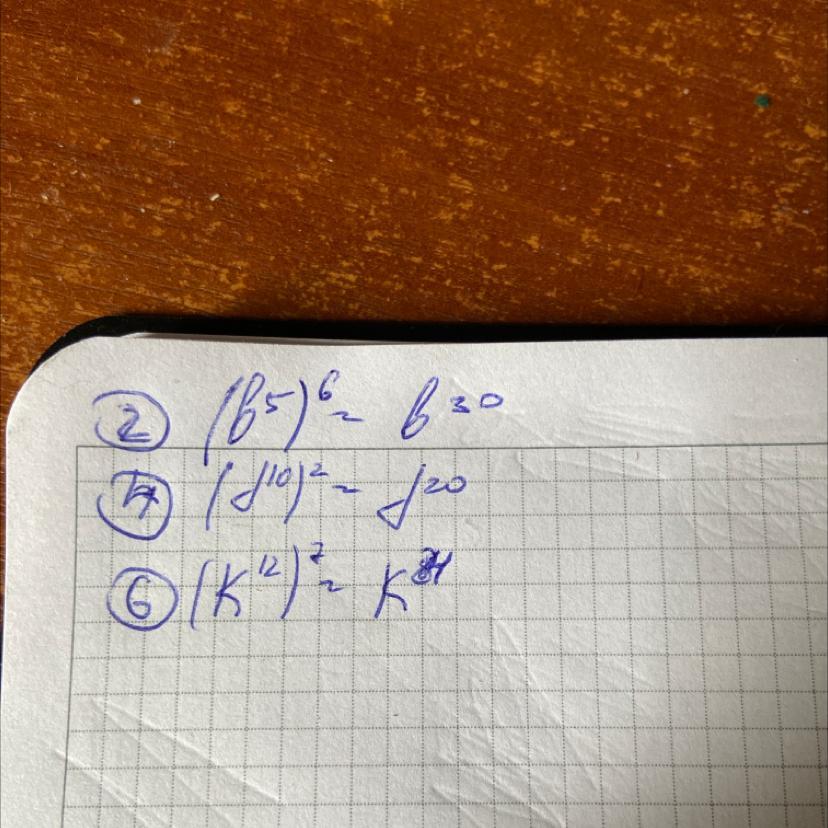 ② (b⁵)⁶ = b³⁰
④ (d¹⁰)² = d²⁰
⑥ (K¹²)⁷ = K⁸⁴